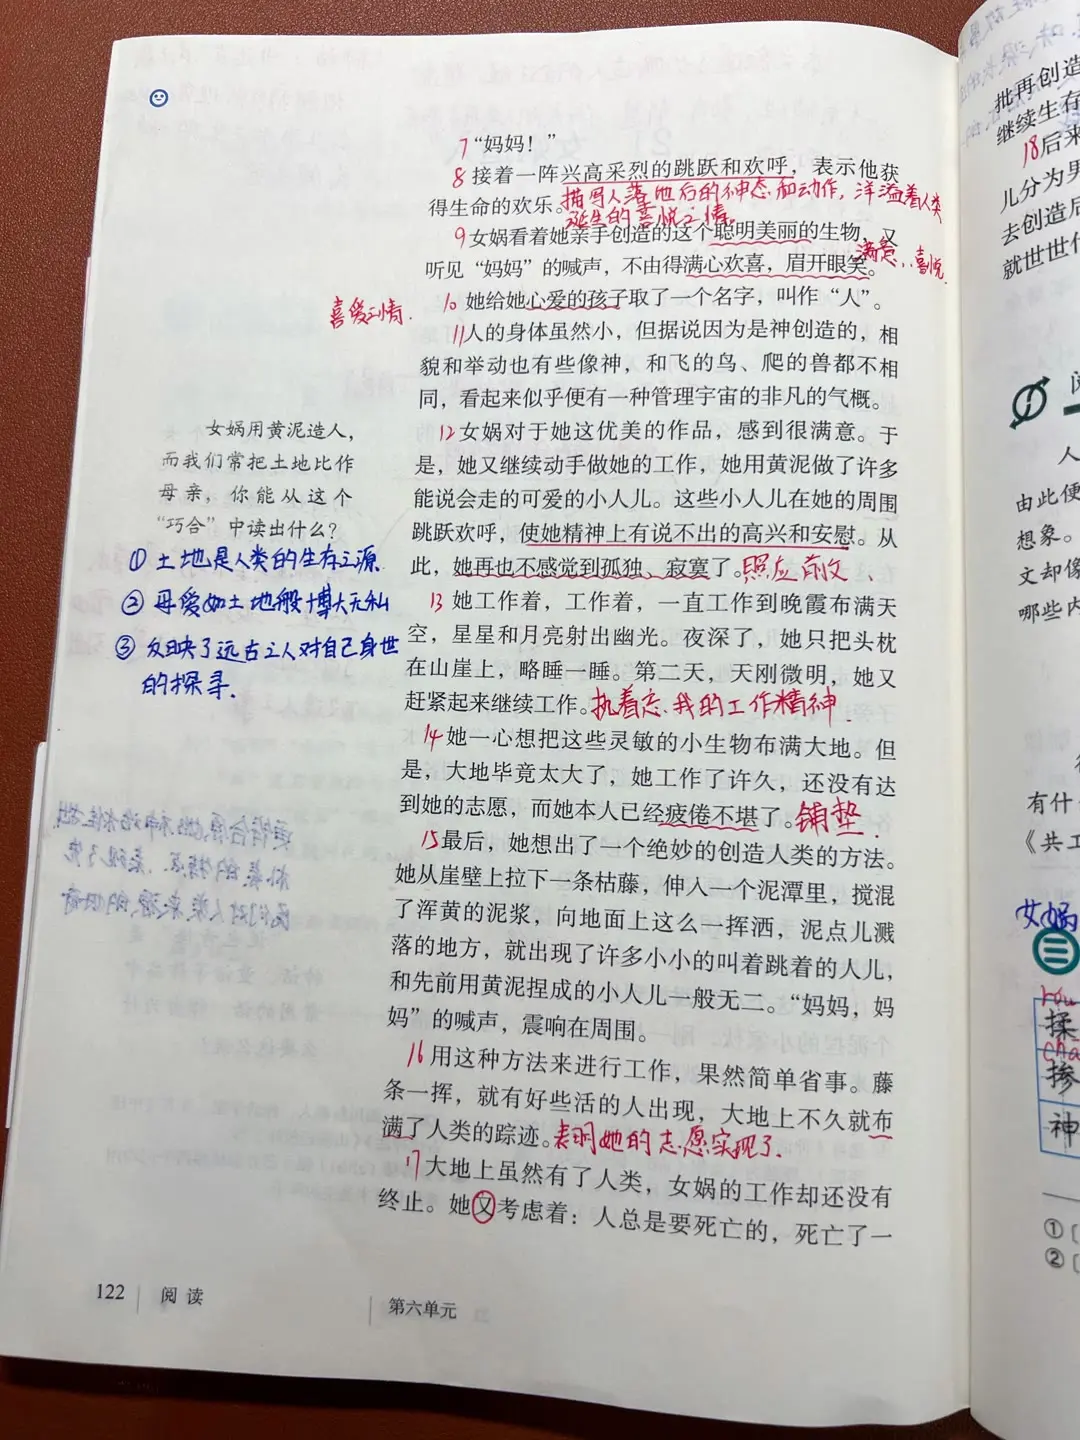 7“妈妈！”
8接着一阵兴高采烈的跳跃和欢呼，表示他获
得生命的欢乐。描写人落地后的神态和动作，洋溢着人类
诞生的喜悦之情。
9女娲看着她亲手创造的这个聪明美丽的生物，又
满意、喜悦
听见“妈妈”的喊声，不由得满心欢喜，眉开眼笑。
10她给她心爱的孩子取了一个名字，叫作“人”。
喜爱之情.
11人的身体虽然小，但据说因为是神创造的，相
貌和举动也有些像神，和飞的鸟、爬的兽都不相
同，看起来似乎便有一种管理宇宙的非凡的气概。
12女娲对于她这优美的作品，感到很满意。于
是，她又继续动手做她的工作，她用黄泥做了许多
能说会走的可爱的小人儿。这些小人儿在她的周围
跳跃欢呼，使她精神上有说不出的高兴和安慰。从
此，她再也不感觉到孤独、寂寞了。照应前文、
13她工作着，工作着，一直工作到晚霞布满天
空，星星和月亮射出幽光。夜深了，她只把头枕
在山崖上，略睡一睡。第二天，天刚微明，她又
赶紧起来继续工作。执着忘我的工作精神.
14她一心想把这些灵敏的小生物布满大地。但
是，大地毕竟太大了，她工作了许久，还没有达
到她的志愿，而她本人已经疲倦不堪了。铺垫.
15最后，她想出了一个绝妙的创造人类的方法。
她从崖壁上拉下一条枯藤，伸入一个泥潭里，搅混
了浑黄的泥浆，向地面上这么一挥洒，泥点儿溅
落的地方，就出现了许多小小的叫着跳着的人儿，
和先前用黄泥捏成的小人儿一般无二。“妈妈，妈
妈”的喊声，震响在周围。
16用这种方法来进行工作，果然简单省事。藤
条一挥，就有好些活的人出现，大地上不久就布
满了人类的踪迹。表明她的志愿实现了.
17大地上虽然有了人类，女娲的工作却还没有
终止。她又考虑着：人总是要死亡的，死亡了一
女娲用黄泥造人，
而我们常把土地比作
母亲，你能从这个
“巧合”中读出什么？
①土地是人类的生存之源.
②母爱如土地般博大无私
③反映了远古之人对自己身世
的探寻.
122
阅读
第六单元
批再创造
继续生存
18后来
儿分为男
去创造后
就世世代
人
由此便
想象。
文却像
哪些内
有什
《共工
女娲
三
rou
揉
掺
神
①〔
②〔